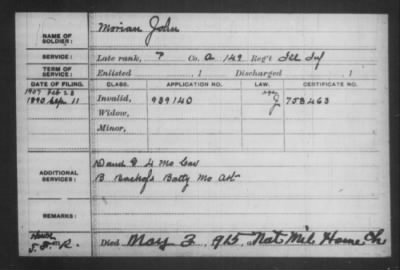 NAME OF SOLDIER: Morian John
SERVICE: Late rank, ? Co. A 149 Reg't Ill Inf
TERM OF SERVICE: Enlisted , 1 Discharged , 1
DATE OF FILING. CLASS. APPLICATION NO. LAW. CERTIFICATE NO.
1907 Feb 23
1890 Sep 11 Invalid, 939140 J 758463
Widow,
Minor,
ADDITIONAL SERVICES: D and G 4 Mo Cav
B Batty Mo Art
REMARKS:
Died May 3, 1915, at Nat Mil Home